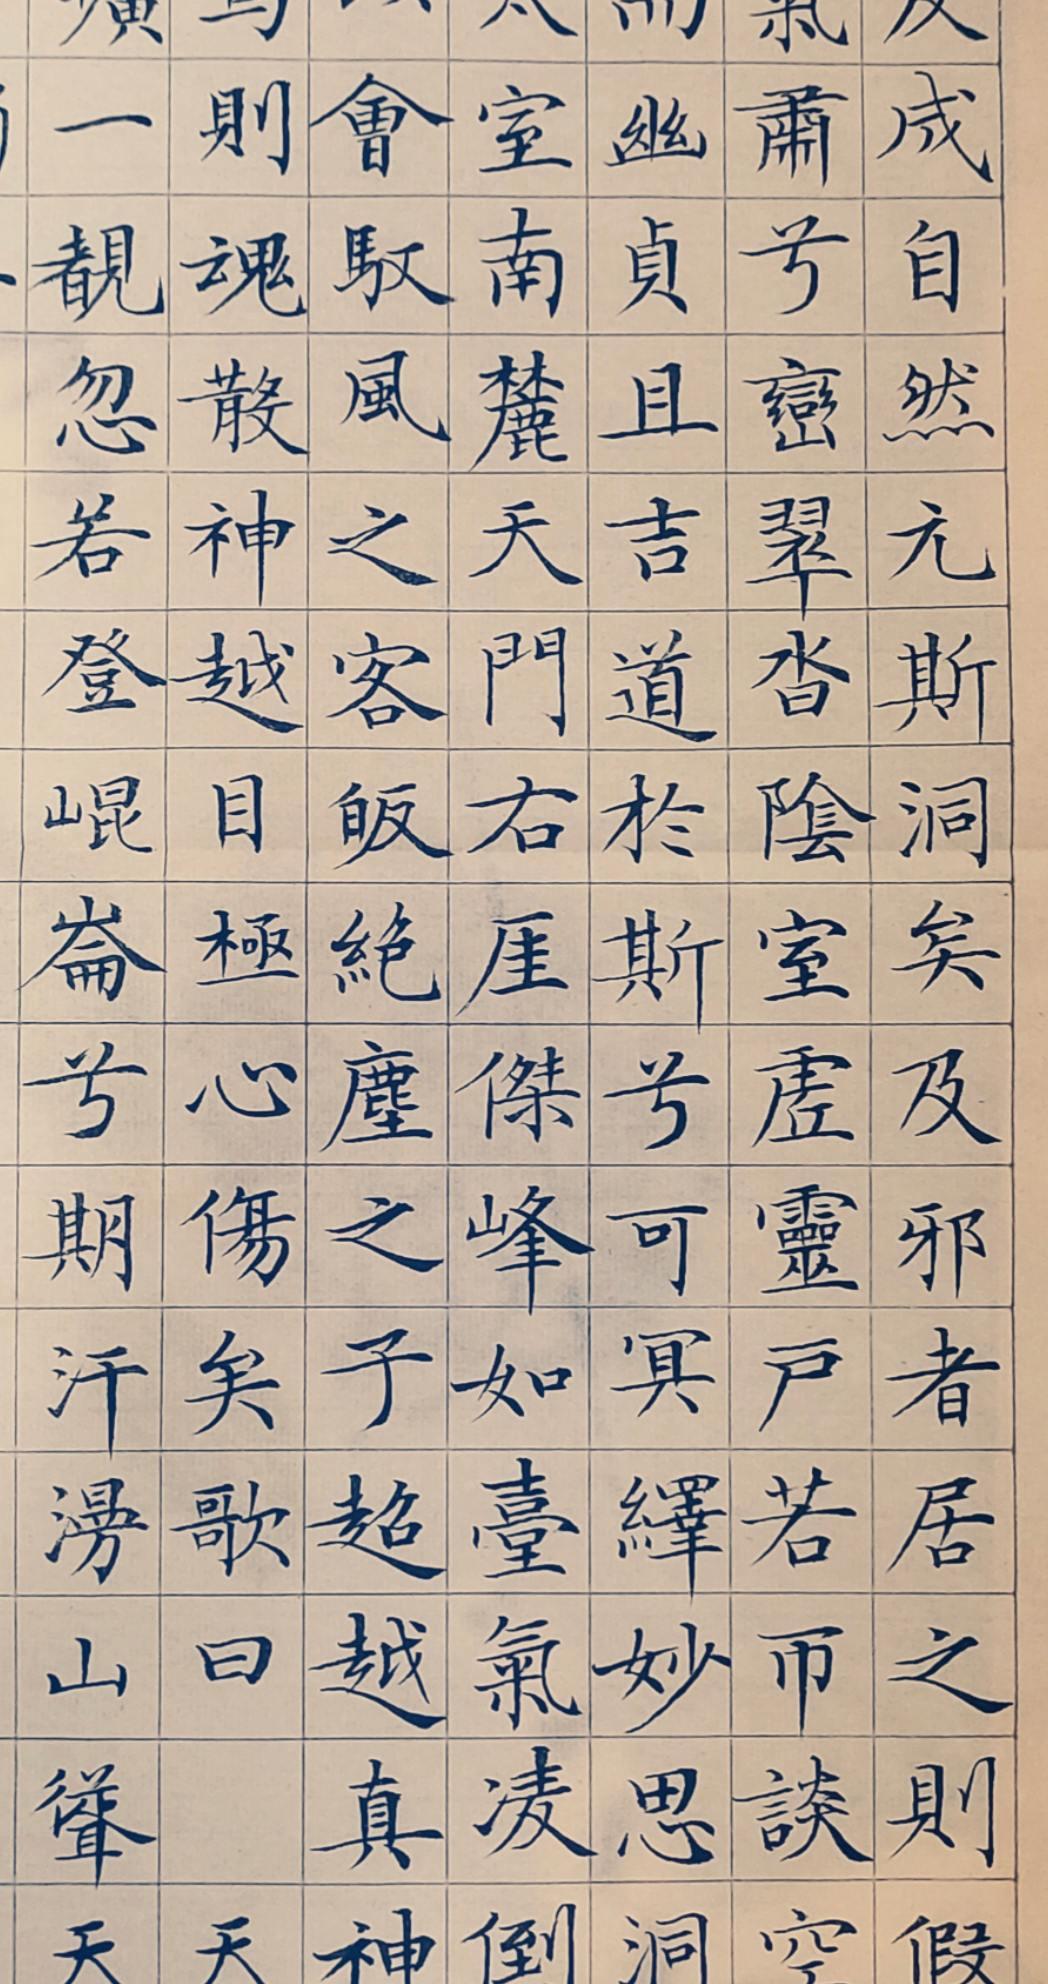 及成自然亢斯洞矣及邪者居之則假
氣肅兮巒翠沓陰室虛靈戶若帀談空
而幽貞且吉道於斯兮可冥繹妙思洞
太室南麓天門右厓傑峰如臺氣凌倒
會馭風之客皈絕塵之子超越真神
焉則魂散神越目極心傷矣歌曰 天
壙一覩忽若登崐崙兮期汗漫山聳天